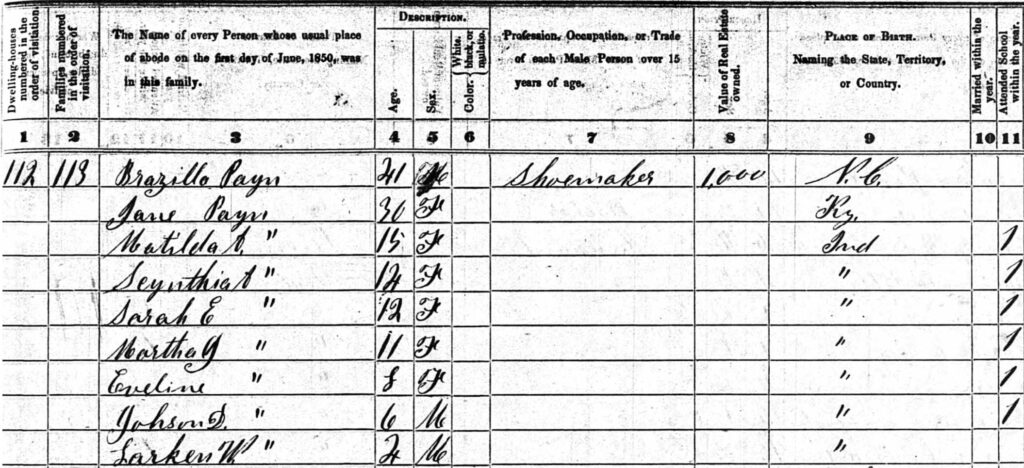 Dwelling-houses numbered in the order of visitation.
Families numbered in the order of visitation.
The Name of every Person whose usual place of abode on the first day of June, 1850, was in this family.
DESCRIPTION.
Age.
Sex.
Color. White, black, or mulatto.
Profession, Occupation, or Trade of each Male Person over 15 years of age.
Value of Real Estate owned.
PLACE OF BIRTH. Naming the State, Territory, or Country.
Married within the year.
Attended School within the year.
1 2 3 4 5 6 7 8 9 10 11
112 113 Brazillo Payn 41 M Shoemaker 1,000 N.C.
Jane Payn 30 F Ky.
Matilda A. " 15 F Ind 1
Seynthia A " 14 F " 1
Sarah E " 12 F " 1
Martha J " 11 F " 1
Eveline " 8 F " 1
Johson D. " 6 M " 1
Larken W. " 4 M "